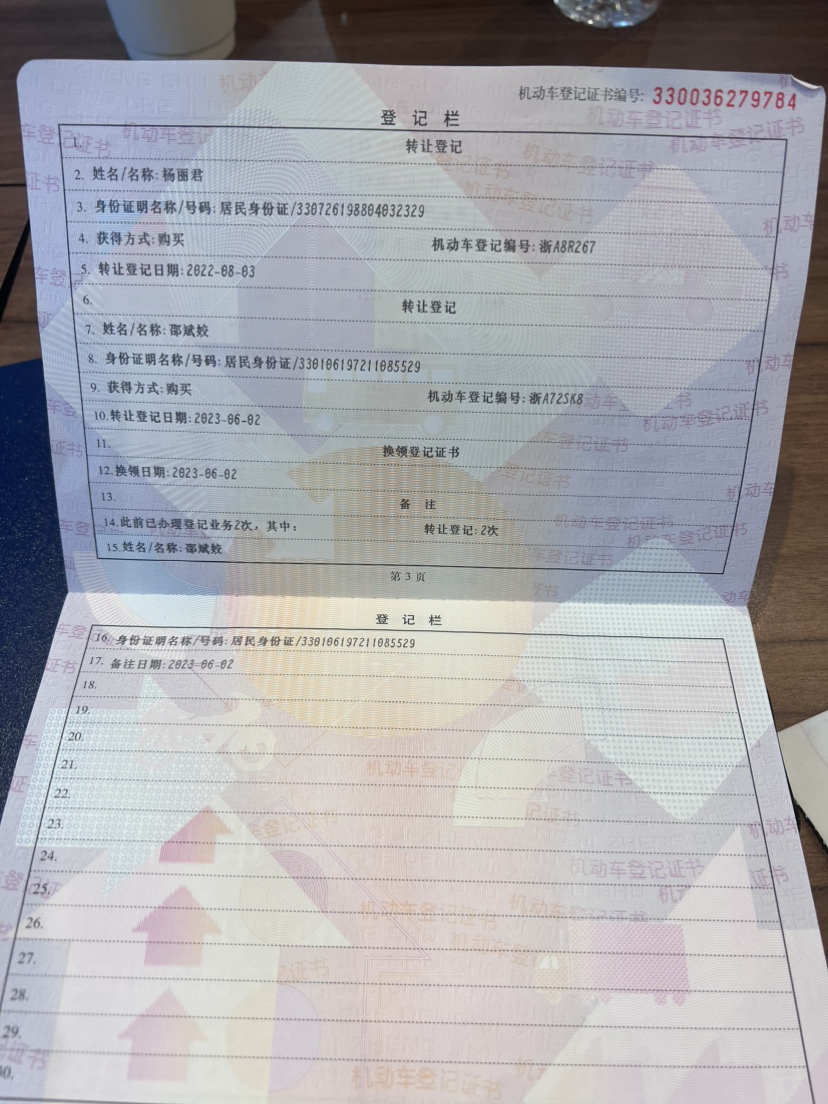 机动车登记证书编号: 330036279784
登 记 栏
1. 转让登记
2. 姓名/名称: 杨丽君
3. 身份证明名称/号码: 居民身份证/330726198804032329
4. 获得方式: 购买 机动车登记编号: 浙A8R267
5. 转让登记日期: 2022-08-03
6. 转让登记
7. 姓名/名称: 邵斌姣
8. 身份证明名称/号码: 居民身份证/330106197211085529
9. 获得方式: 购买 机动车登记编号: 浙A72SK8
10. 转让登记日期: 2023-06-02
11. 换领登记证书
12. 换领日期: 2023-06-02
13. 备 注
14. 此前已办理登记业务2次, 其中: 转让登记: 2次
15. 姓名/名称: 邵斌姣
第 3 页
登 记 栏
16. 身份证明名称/号码: 居民身份证/330106197211085529
17. 备注日期: 2023-06-02
18.
19.
20.
21.
22.
23.
24.
25.
26.
27.
28.
29.
30.